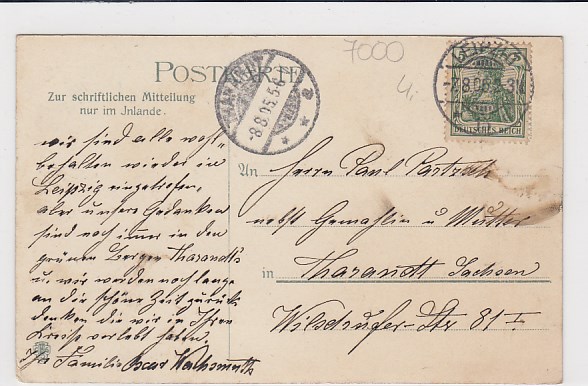 7000
POSTKARTE
Zur schriftlichen Mitteilung
nur im Jnlande.
LEIPZIG
DEUTSCHES REICH
THARANDT
8.8.05.5-6
a
wir sind alle wohl-
behalten wieder in
Leipzig eingetroffen,
aber unsere Gedanken
sind noch immer in den
grünen Bergen Tharandt's
u. wir werden noch lange
an die schöne Zeit zurück
denken die wir in Ihrem
Kreise verlebt haben.
Familie Oscar
An Herrn Paul
nebst Gemahlin u Mutter
in Tharandt Sachsen
Wilsdrufer-Str 81 I